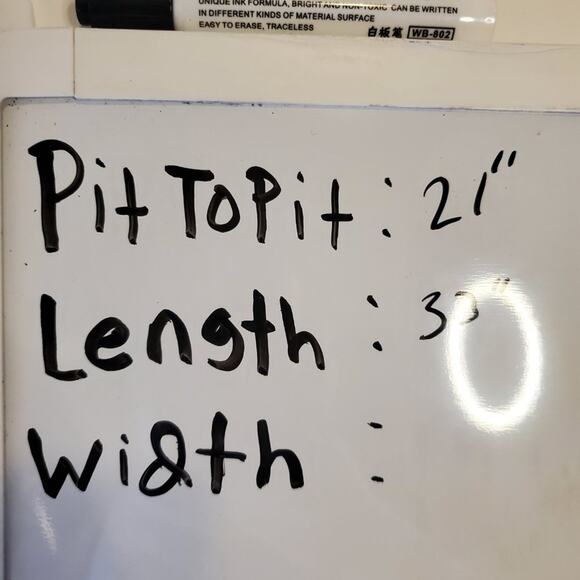 UNIQUE INK FORMULA, BRIGHT AND NON-TOXIC CAN BE WRITTEN
IN DIFFERENT KINDS OF MATERIAL SURFACE
EASY TO ERASE, TRACELESS
白板笔 WB-802
Pit To Pit : 21"
Length :
Width :